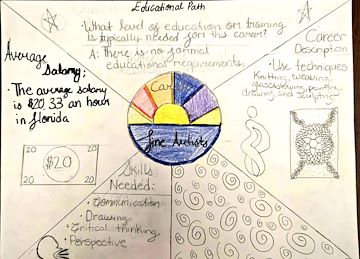 Educational Path
What level of education or training
is typically needed for the career?
A: There is no formal
educational requirements.
Average
Salary:
• The average salary
is $20.33 an hour
in florida
20 20
$20
20 20
Career
Description
• Use techniques
Knitting, weaving,
glassblowing, painting,
drawing, and sculpting.
Fine Artists
Skills
Needed:
• Communication
• Drawing
• Critical thinking
• Perspective